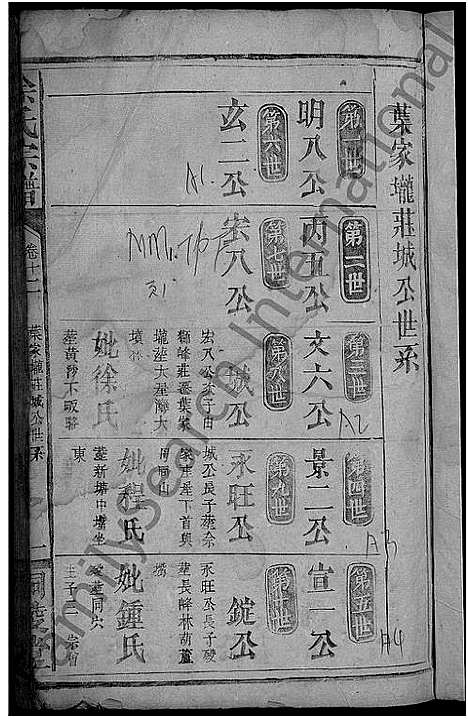 葉家壠莊城公世系
第一世
明八公
第二世
丙五公
第三世
文六公
第四世
景二公
第五世
宣一公
第六世
玄二公
第七世
宏八公
第八世
城公
宏八公公子由
遷葉家
壠莊大
墳
妣徐氏
葬黃
第九世
永旺公
城公長子葬余
家庄屋下首與
周同山
妣程氏
葬新塘中壠坐
東
第十世
錠公
永旺公長子歿
葬長峰林葫蘆
妣鍾氏
葬同穴
生子二
余氏宗譜
卷十二
葉家壠莊城公世系
A1
A2
A3
A4
FamilySearch International